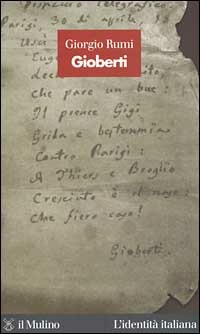 Dispaccio telegrafico.
Parigi, 30 di aprile, 18
Giorgio Rumi
Gioberti
Uscì
Eug
dec
che pare un bue:
Il prence Gigi
Grida e bestemmia
Contro Parigi:
A Thiers e Broglio
Cresciuto è il naso:
Che fiero caso!
Gioberti.
il Mulino
L'identità italiana